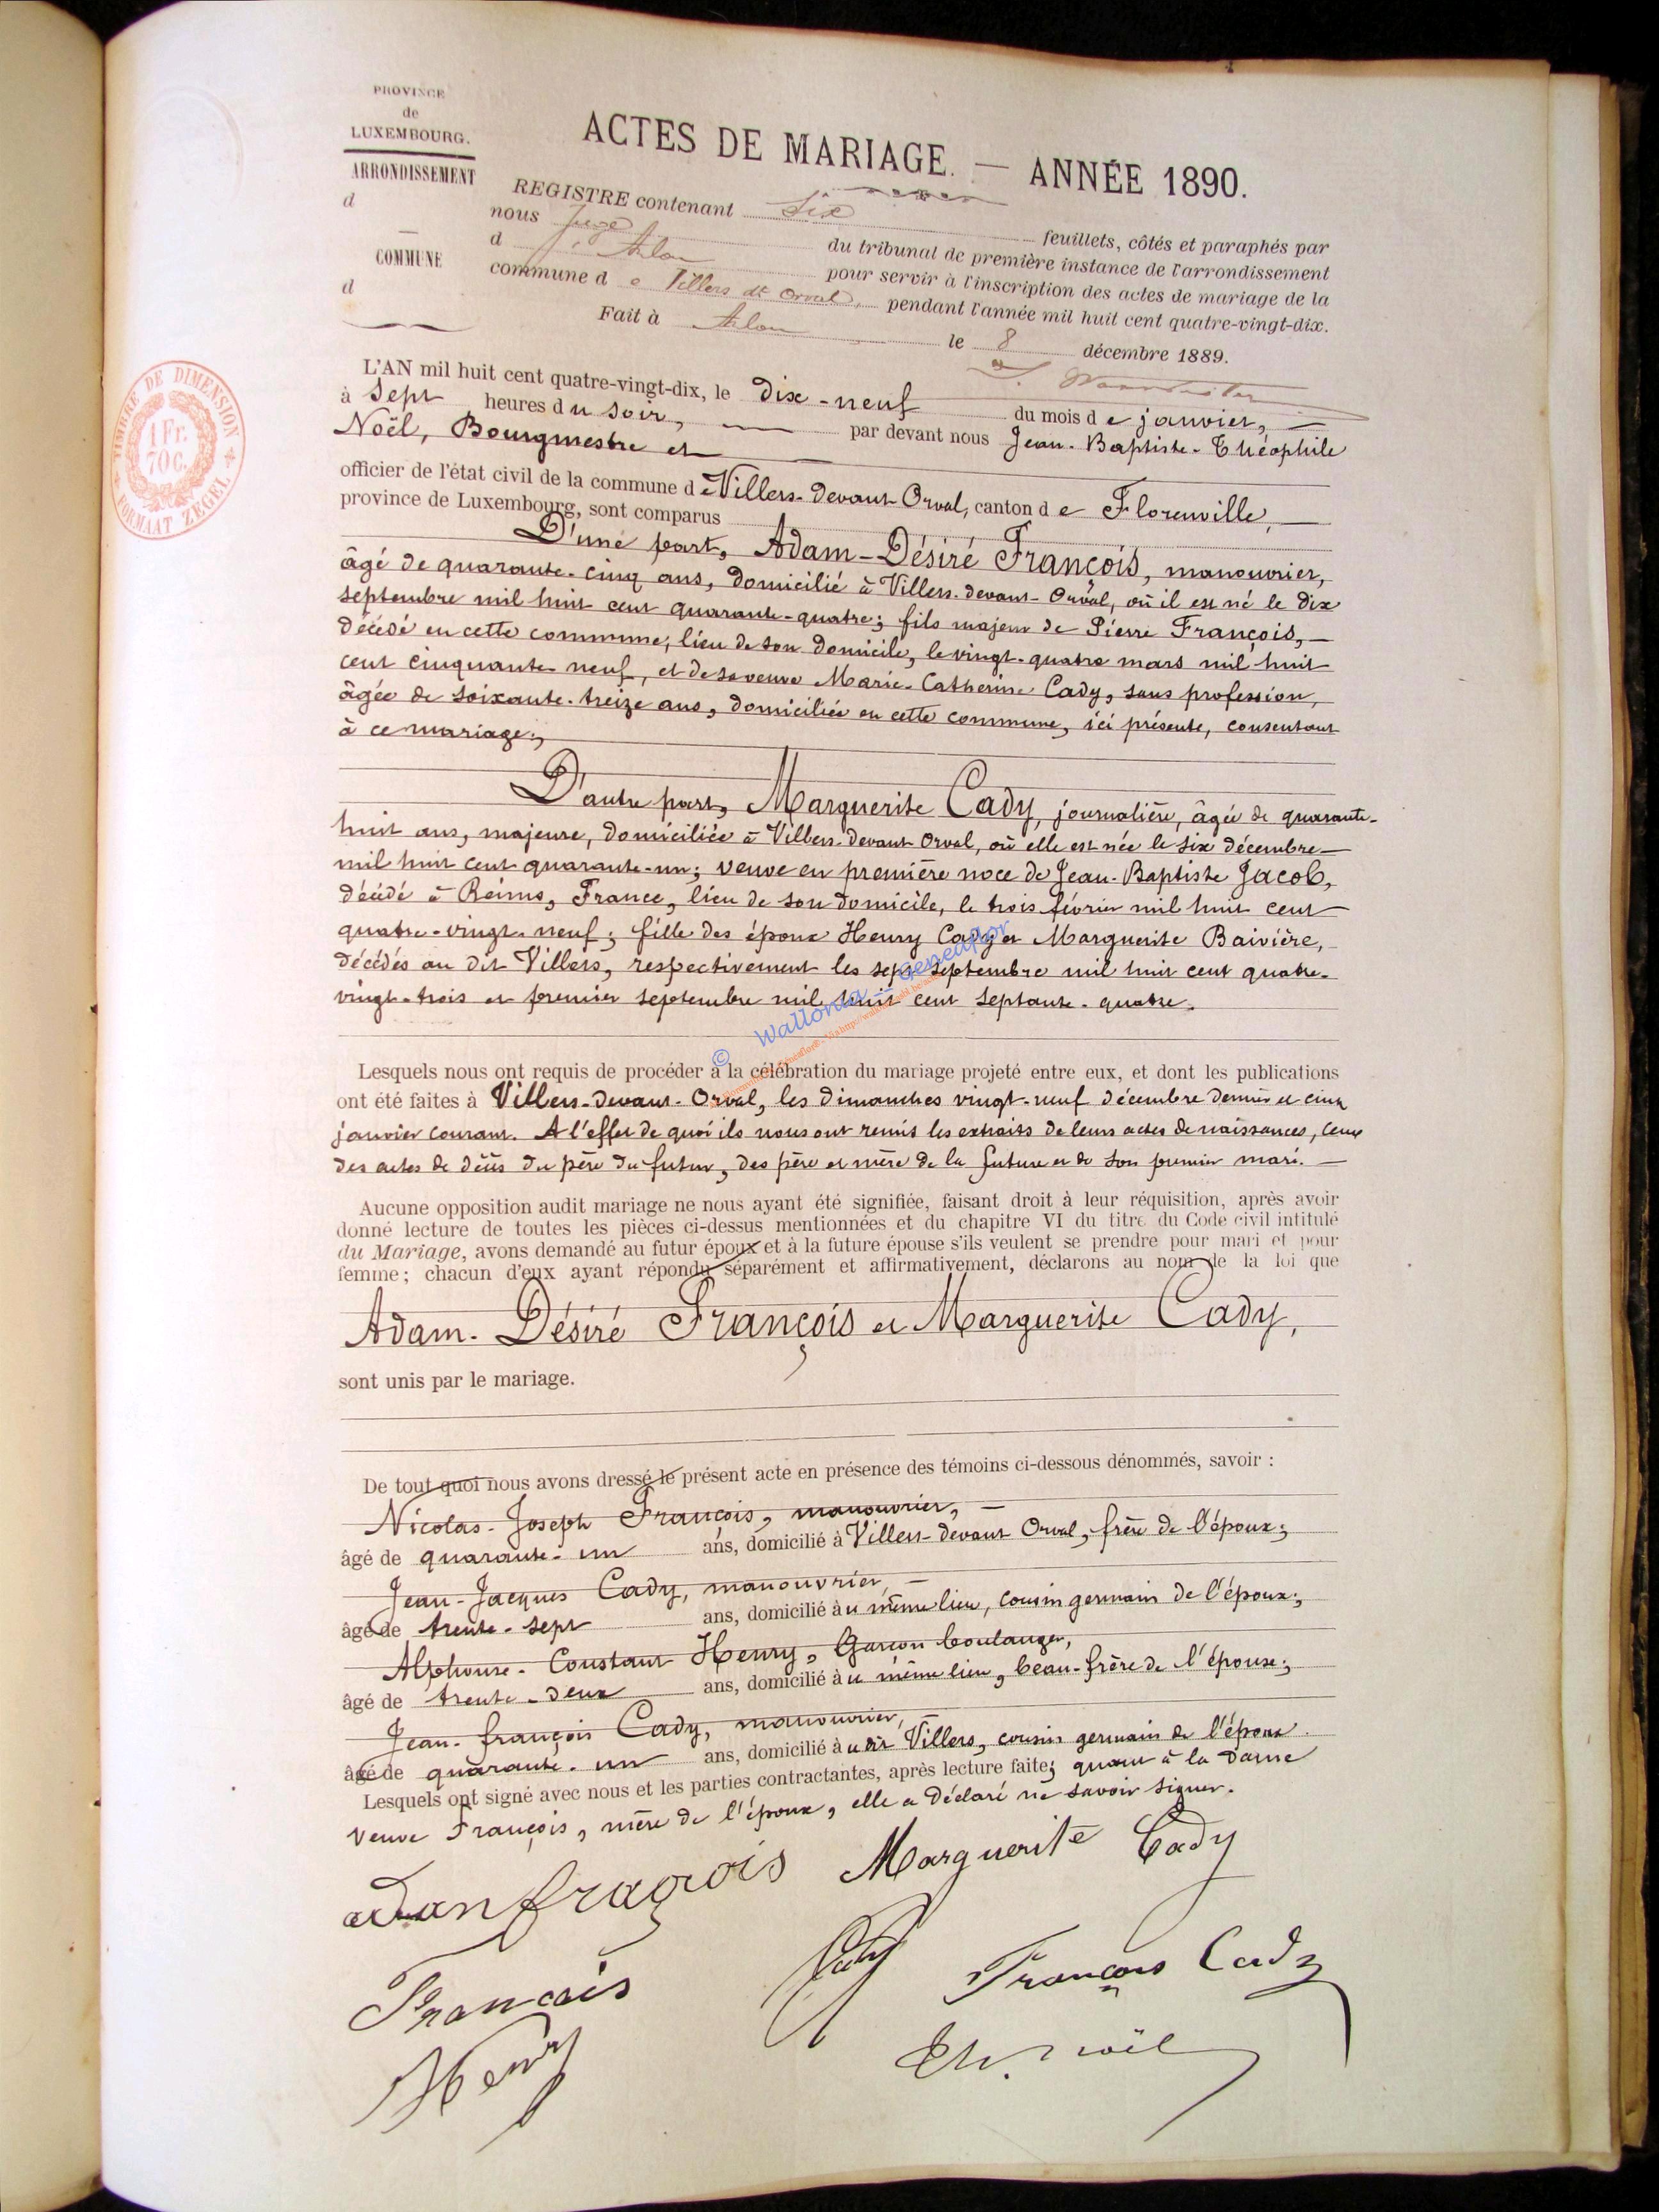 PROVINCE
de
LUXEMBOURG.
ARRONDISSEMENT
d
COMMUNE
d
ACTES DE MARIAGE. — ANNÉE 1890.
REGISTRE contenant six feuillets, côtés et paraphés par
nous Juge du tribunal de première instance de l'arrondissement
d'Arlon pour servir à l'inscription des actes de mariage de la
commune de Villers dt Orval, pendant l'année mil huit cent quatre-vingt-dix.
Fait à Arlon le 8 décembre 1889.
TIMBRE DE DIMENSION
1 Fr.
70 C.
FORMAAT ZEGEL
L'AN mil huit cent quatre-vingt-dix, le dix-neuf du mois de janvier, —
à sept heures du soir, — par devant nous Jean-Baptiste-Théophile
Noël, Bourgmestre et
officier de l'état civil de la commune de Villers-devant-Orval, canton de Florenville, —
province de Luxembourg, sont comparus
D'une part, Adam-Désiré François, manouvrier,
âgé de quarante-cinq ans, domicilié à Villers-devant-Orval, où il est né le dix
septembre mil huit cent quarante-quatre; fils majeur de Pierre François, —
décédé en cette commune, lieu de son domicile, le vingt-quatre mars mil huit
cent cinquante-neuf, et de sa veuve Marie-Catherine Cady, sans profession,
âgée de soixante-treize ans, domiciliée en cette commune, ici présente, consentant
à ce mariage;
D'autre part, Marguerite Cady, journalière, âgée de quarante-
huit ans, majeure, domiciliée à Villers-devant Orval, où elle est née le six décembre —
mil huit cent quarante-un; veuve en première noce de Jean-Baptiste Jacob,
décédé à Reims, France, lieu de son domicile, le trois février mil huit cent
quatre-vingt-neuf; fille des époux Henry Cady et Marguerite Baivière,
décédés au dit Villers, respectivement les sept septembre mil huit cent quatre-
vingt-trois et premier septembre mil huit cent septante-quatre.
© Wallonia - Geneaflor
Lesquels nous ont requis de procéder à la célébration du mariage projeté entre eux, et dont les publications
ont été faites à Villers-devant-Orval, les dimanches vingt-neuf décembre dernier et cinq
janvier courant. A l'effet de quoi ils nous ont remis les extraits de leurs actes de naissances, ceux
des actes de décès du père du futur, des père et mère de la future et de son premier mari. —
Aucune opposition audit mariage ne nous ayant été signifiée, faisant droit à leur réquisition, après avoir
donné lecture de toutes les pièces ci-dessus mentionnées et du chapitre VI du titre du Code civil intitulé
du Mariage, avons demandé au futur époux et à la future épouse s'ils veulent se prendre pour mari et pour
femme; chacun d'eux ayant répondu séparément et affirmativement, déclarons au nom de la loi que
Adam-Désiré François et Marguerite Cady,
sont unis par le mariage.
De tout quoi nous avons dressé le présent acte en présence des témoins ci-dessous dénommés, savoir :
Nicolas-Joseph François, manouvrier, —
âgé de quarante-un ans, domicilié à Villers-devant Orval, frère de l'époux;
Jean-Jacques Cady, manouvrier, —
âgé de trente-sept ans, domicilié au même lieu, cousin germain de l'époux;
Alphonse-Constant Henry, Garçon boulanger,
âgé de trente-deux ans, domicilié au même lieu, beau-frère de l'épouse;
Jean-François Cady, manouvrier, —
âgé de quarante-un ans, domicilié au dit Villers, cousin germain de l'époux.
Lesquels ont signé avec nous et les parties contractantes, après lecture faite; quant à la Dame
veuve François, mère de l'époux, elle a déclaré ne savoir signer.
Marguerite Cady
François
Cady
François Cady
Henry
Th. Noël